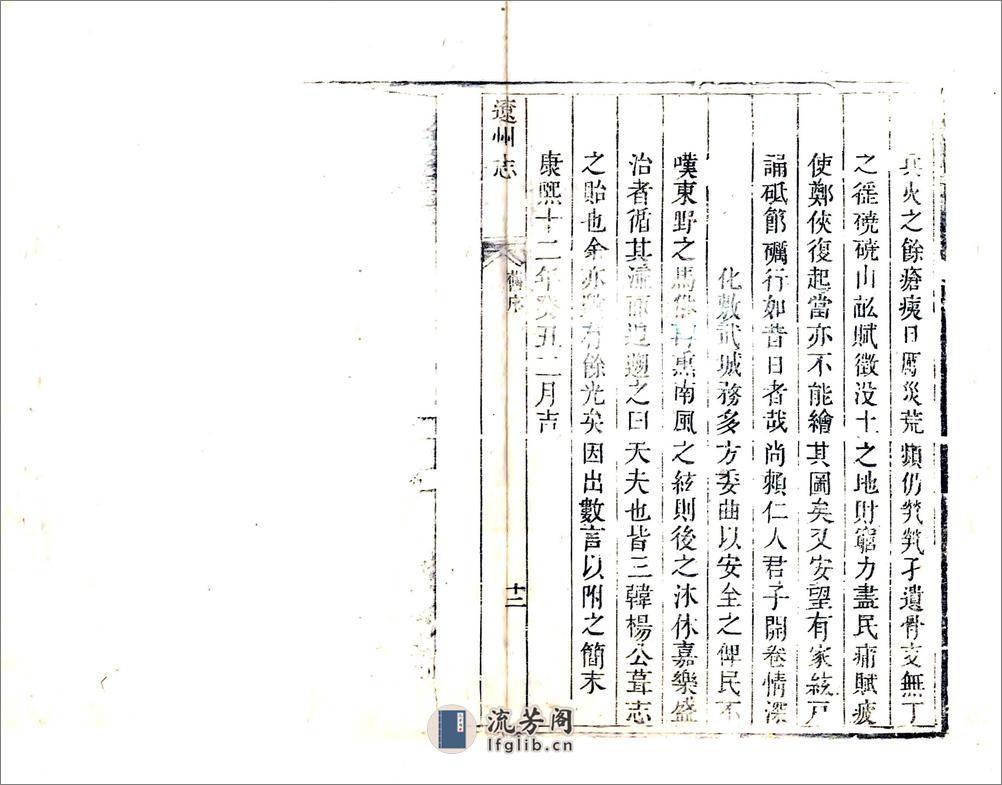 兵火之餘瘡痍日厲災荒頻仍煢煢孑遺骨支無丁
之徭磽磽山畝賦徵没土之地財窮力盡民痡賦疲
使鄭俠復起當亦不能繪其圖矣又安望有家絃戸
誦砥節礪行如昔日者哉尚賴仁人君子開卷情深
化敷武城務多方委曲以安全之俾民不
嘆東野之馬俗再熏南風之絃則後之沐休嘉樂盛
治者循其流而追遡之曰天夫也皆三韓楊公葺志
之貽也余亦有餘光矣因出數言以附之簡末
康熙十二年癸丑二月吉
遼州志
舊序
十二
流芳阁
lfglib.cn